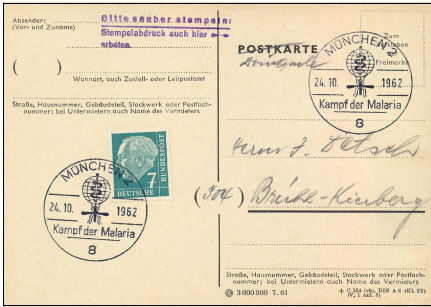 Absender:
(Vor- und Zuname)
Bitte sauber stempeln!
Stempelabdruck auch hier
erbeten.
( )
Wohnort, auch Zustell- oder Leitpostamt
Straße, Hausnummer, Gebäudeteil, Stockwerk oder Postfach-
nummer; bei Untermietern auch Name des Vermieters
MÜNCHEN 2
24.10. 1962
Kampf der Malaria
8
7
DEUTSCHE
BUNDESPOST
POSTKARTE
Zum
Freimarke
MÜNCHEN 2
24.10. 1962
Kampf der Malaria
8
Herrn J.
Brühl-Kierberg
Straße, Hausnummer, Gebäudeteil, Stockwerk oder Postfach-
nummer; bei Untermietern auch Name des Vermieters
3 000 000 7. 61
+ C 154 (vh). DIN A 6 (Kl. 22)
(V, 1 Anl. 8)